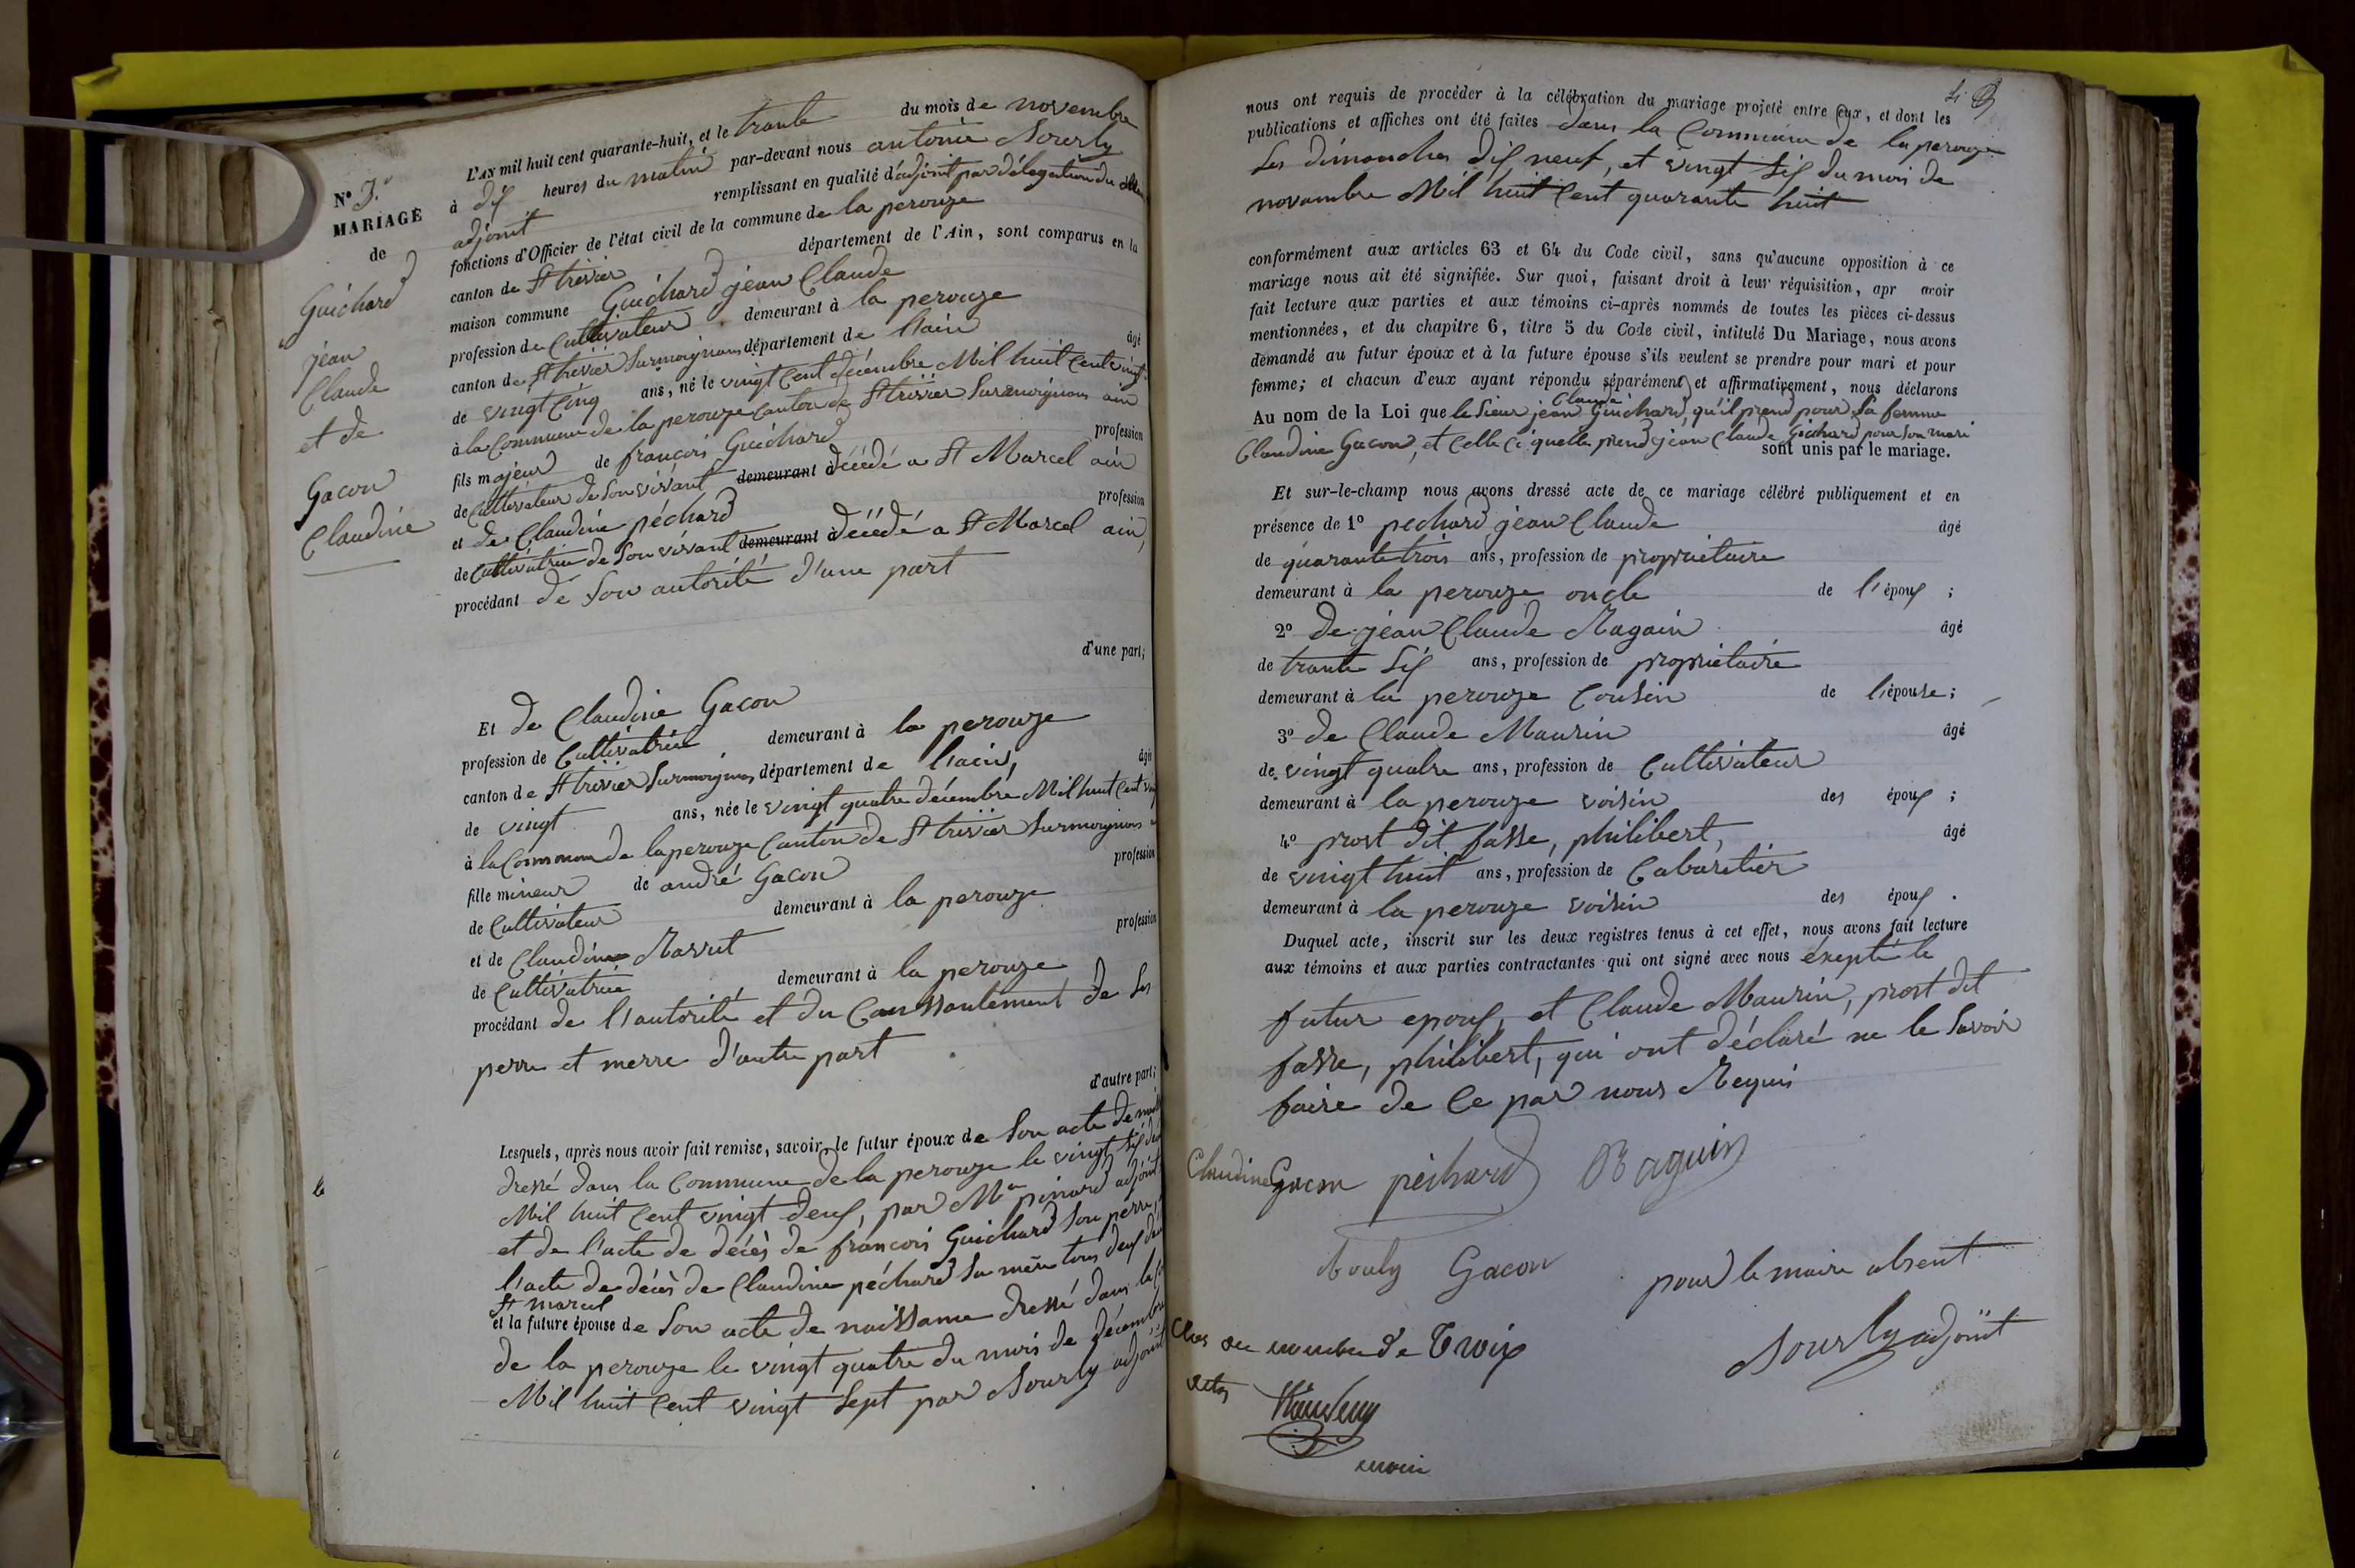 N° 3.
MARIAGE
de
Guichard
jean
Claude
et de
Gacon
Claudine
L'AN mil huit cent quarante-huit, et le trante du mois de novembre
à dix heures du matin par-devant nous antoine Sourly
adjoint remplissant en qualité d'adjoint par délégation du
fonctions d'Officier de l'état civil de la commune de la perouze
canton de St trivier département de l'Ain, sont comparus en la
maison commune Guichard jean Claude
profession de Cultivateur demeurant à la perouze
canton de St trivier Surmoignans département de l'ain âgé
de vingt Cinq ans, né le vingt Cent décembre Mil huit Cent vingt
à la Commune de la perouze Canton de St trivier Surmoignans ain
fils majeur de françois Guichard profession
de Cultivateur de Son vivant demeurant à décédé a St Marcel ain
et de Claudine péchard profession
de Cultivatrice de Son vivant demeurant à décédé a St Marcel ain,
procédant de Son autorité d'une part
d'une part;
Et de Claudine Gacon
profession de Cultivatrice demeurant à la perouze
canton de St trivier Surmoignans département de l'ain, âgée
de vingt ans, née le vingt quatre décembre Mil huit Cent
à la Commune de laperouze Canton de St trivier Surmoignans
fille mineur de andré Gacon profession
de Cultivateur demeurant à la perouze
et de Claudine Ravut profession
de Cultivatrice demeurant à la perouze
procédant de l'autorité et du Canssantement de Ses
perre et merre d'autre part
d'autre part;
Lesquels, après nous avoir fait remise, savoir, le futur époux de Son acte de
dressé dans la Commune de la perouze le vingt Six
Mil huit Cent vingt deux, par Mr pinard adjoint
et de l'acte de décès de françois Guichard Son perre,
l'acte de décès de Claudine péchard Sa mère tous deux
St marcel
et la future épouse de Son acte de naissance dressé dans la
de la perouze le vingt quatre du mois de décembre
Mil huit Cent vingt Sept par Sourly adjoint
nous ont requis de procéder à la célébration du mariage projeté entre eux, et dont les
publications et affiches ont été faites dans la Commune de la perouze
Les dimanches dix neuf, et vingt Six du mois de
novembre Mil huit Cent quarante huit
conformément aux articles 63 et 64 du Code civil, sans qu'aucune opposition à ce
mariage nous ait été signifiée. Sur quoi, faisant droit à leur réquisition, apr avoir
fait lecture aux parties et aux témoins ci-après nommés de toutes les pièces ci-dessus
mentionnées, et du chapitre 6, titre 5 du Code civil, intitulé Du Mariage, nous avons
demandé au futur époux et à la future épouse s'ils veulent se prendre pour mari et pour
femme; et chacun d'eux ayant répondu séparément et affirmativement, nous déclarons
Claude
Au nom de la Loi que le Sieur jean Guichard, qu'il prend pour Sa femme
Claudine Gacon, et Celle Ci quelle prend jean Claude Gichard pour Son mari
sont unis par le mariage.
Et sur-le-champ nous avons dressé acte de ce mariage célébré publiquement et en
présence de 1° pechard jean Claude âgé
de quarante trois ans, profession de propriétaire
demeurant à la perouze oncle de l'époux ;
2° de jean Claude Ragain âgé
de trante Six ans, profession de propriétaire
demeurant à la perouze Cousin de l'épouse;
3° de Claude Maurin âgé
de vingt quatre ans, profession de Cultivateur
demeurant à la perouze voisin des époux ;
4° prost dit fasse, philibert, âgé
de vingt huit ans, profession de Cabaretier
demeurant à la perouze voisin des époux .
Duquel acte, inscrit sur les deux registres tenus à cet effet, nous avons fait lecture
aux témoins et aux parties contractantes qui ont signé avec nous éxepté le
futur epoux, et Claude Maurin, prost dit
fasse, philibert, qui ont déclaré ne le Savoir
faire de Ce par nous Requi
Claudine Gacon péchard Raguin
Gacon
pour le maire absent
Sourly adjoint
Clos au nombre de Troix
actes
maire